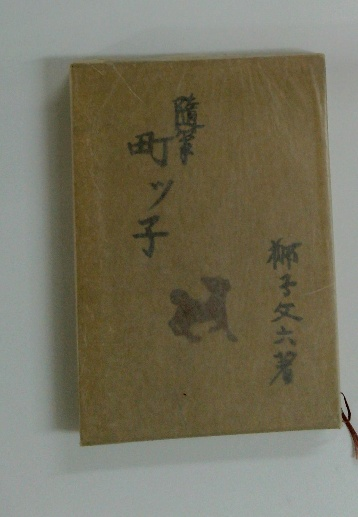 隨筆
町ッ子
獅子文六著